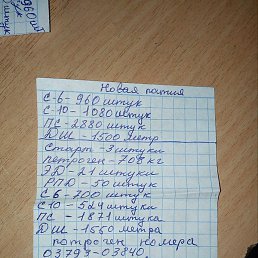 960 шт
Новая партия
С-6 - 960 штук
С-10 - 1080 штук
ПС - 2880 штук
ДШ - 1500 метр
Старт - 3 штуки
петроген - 708 кг
ЭД - 21 штуки
РПД - 50 штук
С-6 - 700 штук
С10 - 524 штука
ПС - 1871 штука
ДШ - 1550 метра
потроген номера
03793-03840.